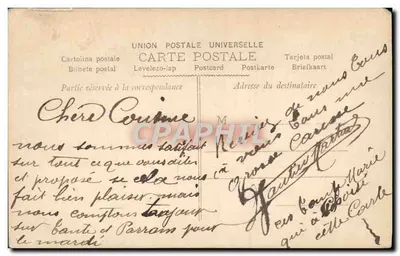 UNION POSTALE UNIVERSELLE
CARTE POSTALE
Cartolina postale Levelezo-lap Postcard Postkarte Tarjeta postal
Bilhete postal Briefkaart
Partie réservée à la correspondance
Adresse du destinataire
M
CPARAMA
Chère Cousine
nous sommes satisfait
sur tout ce que vous dites
et proposé se cela nous
fait bien plaisir mais
nous comptons toujours
sur tante et Parrain pour
le mardi
Recevez de nous tous
à vous tous une
Grosse Caresse
Marie
qui à
cette Carte